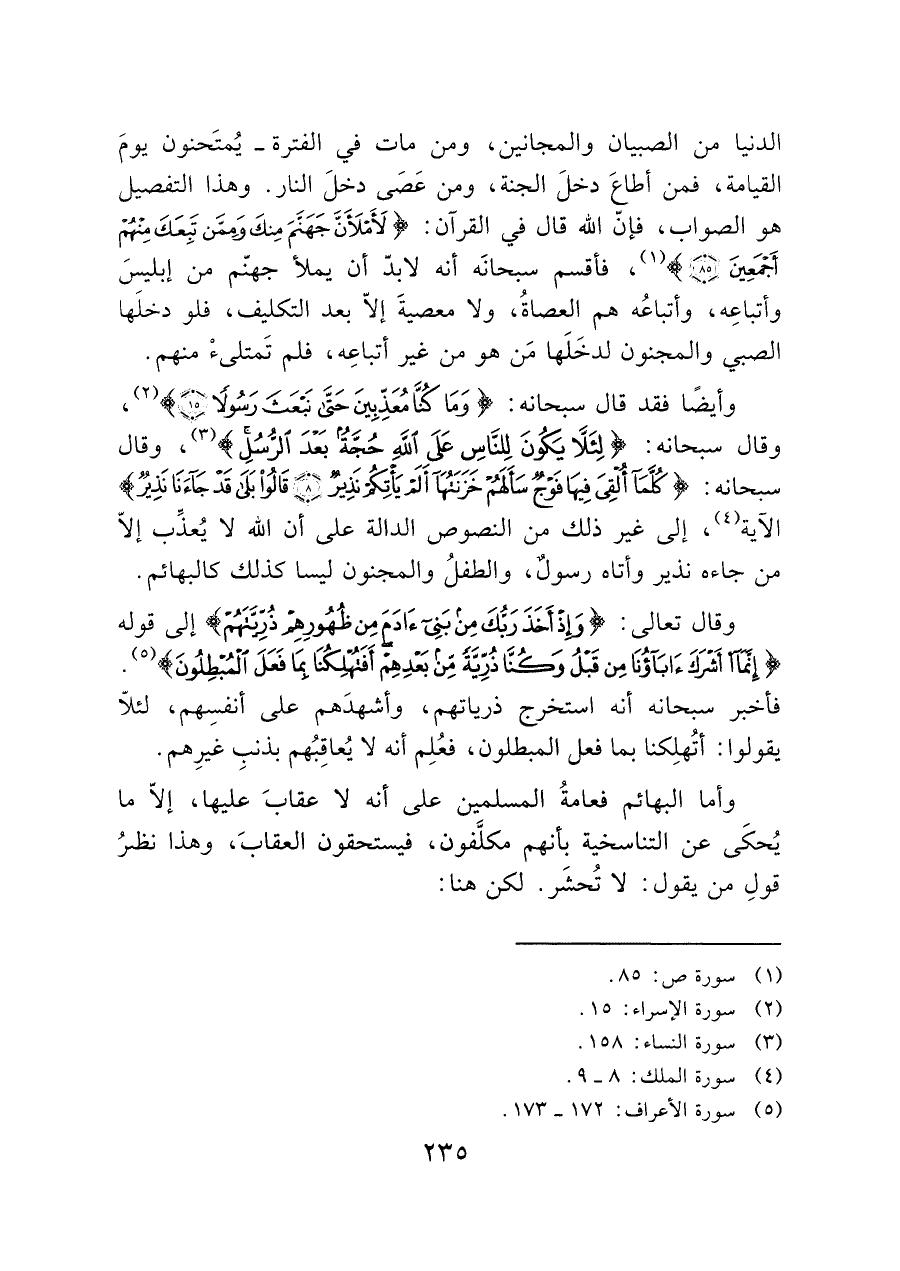 الدنيا من الصبيان والمجانين، ومن مات في الفترة ـ يُمتَحنون يومَ
القيامة، فمن أطاعَ دخلَ الجنة، ومن عَصَى دخلَ النار. وهذا التفصيل
هو الصواب، فإنّ الله قال في القرآن: ﴿لَأَمْلَأَنَّ جَهَنَّمَ مِنكَ وَمِمَّن تَبِعَكَ مِنْهُمْ
أَجْمَعِينَ ٨٥﴾(١)، فأقسم سبحانَه أنه لابدّ أن يملأ جهنّم من إبليسَ
وأتباعِه، وأتباعُه هم العصاةُ، ولا معصيةَ إلاّ بعد التكليف، فلو دخلَها
الصبي والمجنون لدخَلَها مَن هو من غير أتباعِه، فلم تَمتلىءْ منهم.
وأيضًا فقد قال سبحانه: ﴿وَمَا كُنَّا مُعَذِّبِينَ حَتَّىٰ نَبْعَثَ رَسُولًا ١٥﴾(٢)،
وقال سبحانه: ﴿لِئَلَّا يَكُونَ لِلنَّاسِ عَلَى ٱللَّهِ حُجَّةٌۢ بَعْدَ ٱلرُّسُلِۚ﴾(٣)، وقال
سبحانه: ﴿كُلَّمَآ أُلْقِىَ فِيهَا فَوْجٌ سَأَلَهُمْ خَزَنَتُهَآ أَلَمْ يَأْتِكُمْ نَذِيرٌ ٨ قَالُوا۟ بَلَىٰ قَدْ جَآءَنَا نَذِيرٌ﴾
الآية(٤)، إلى غير ذلك من النصوص الدالة على أن الله لا يُعذِّب إلاّ
من جاءه نذير وأتاه رسولٌ، والطفلُ والمجنون ليسا كذلك كالبهائم.
وقال تعالى: ﴿وَإِذْ أَخَذَ رَبُّكَ مِنۢ بَنِىٓ ءَادَمَ مِن ظُهُورِهِمْ ذُرِّيَّتَهُمْ﴾ إلى قوله
﴿إِنَّمَآ أَشْرَكَ ءَابَآؤُنَا مِن قَبْلُ وَكُنَّا ذُرِّيَّةً مِّنۢ بَعْدِهِمْۖ أَفَتُهْلِكُنَا بِمَا فَعَلَ ٱلْمُبْطِلُونَ﴾(٥).
فأخبر سبحانه أنه استخرج ذرياتهم، وأشهدَهم على أنفسِهم، لئلاّ
يقولوا: أتُهلِكنا بما فعل المبطلون، فعُلِم أنه لا يُعاقِبُهم بذنبِ غيرِهم.
وأما البهائم فعامةُ المسلمين على أنه لا عقابَ عليها، إلاّ ما
يُحكَى عن التناسخية بأنهم مكلَّفون، فيستحقون العقابَ، وهذا نظرُ
قولِ من يقول: لا تُحشَر. لكن هنا:
(١) سورة ص: ٨٥.
(٢) سورة الإسراء: ١٥.
(٣) سورة النساء: ١٥٨.
(٤) سورة الملك: ٨ ـ ٩.
(٥) سورة الأعراف: ١٧٢ ـ ١٧٣.
٢٣٥